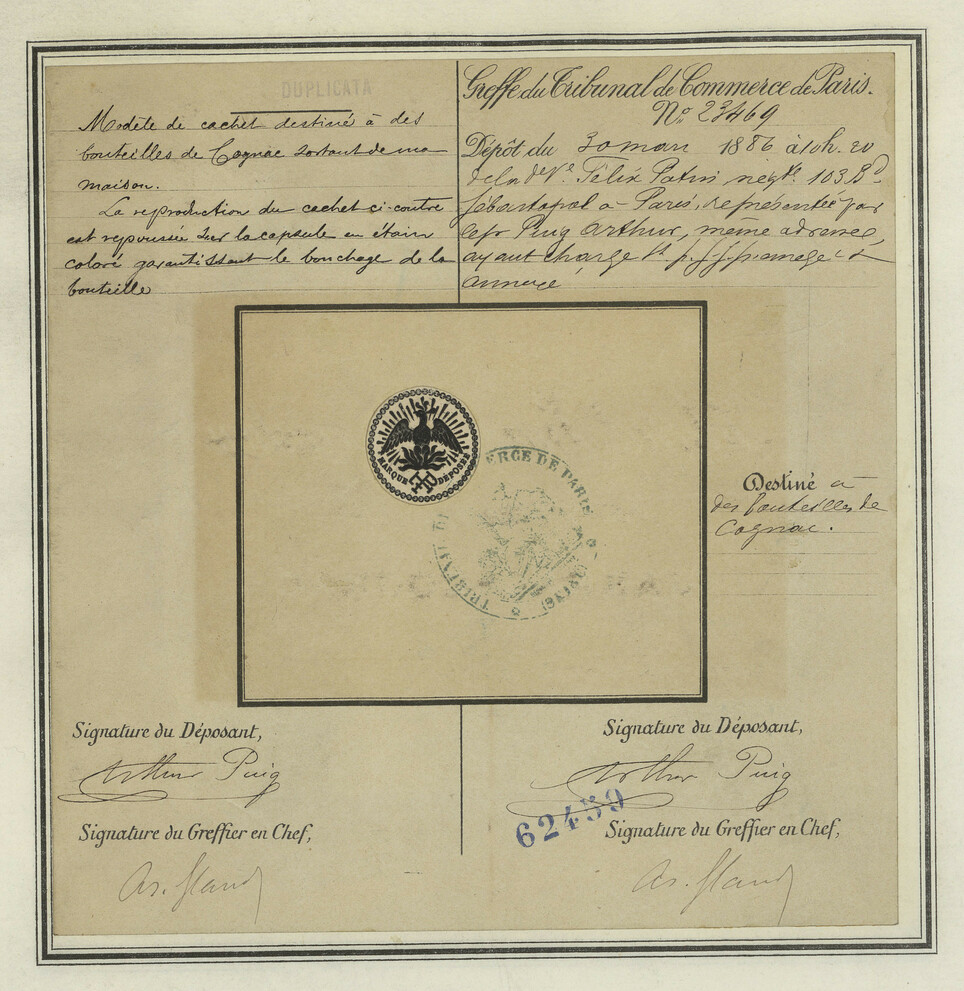 DUPLICATA
Modèle de cachet destiné à des
bouteilles de Cognac sortant de ma
maison.
La reproduction du cachet ci-contre
est repoussée sur la capsule en étain
coloré garantissant le bouchage de la
bouteille
Greffe du Tribunal de Commerce de Paris.
No 23469
Dépôt du 30 mars 1886 à 10h. 20
de la de Ve Félix Potin negte. 103 Bd
Sébastopol à Paris, représentée par
le sr Puig Arthur, même adresse,
ayant charge
annexe
MARQUE DÉPOSÉE
TRIBUNAL DE COMMERCE DE PARIS
(SEINE)
Destiné à
des bouteilles de
Cognac.
Signature du Déposant,
Arthur Puig
Signature du Greffier en Chef,
Signature du Déposant,
Arthur Puig
62459
Signature du Greffier en Chef,